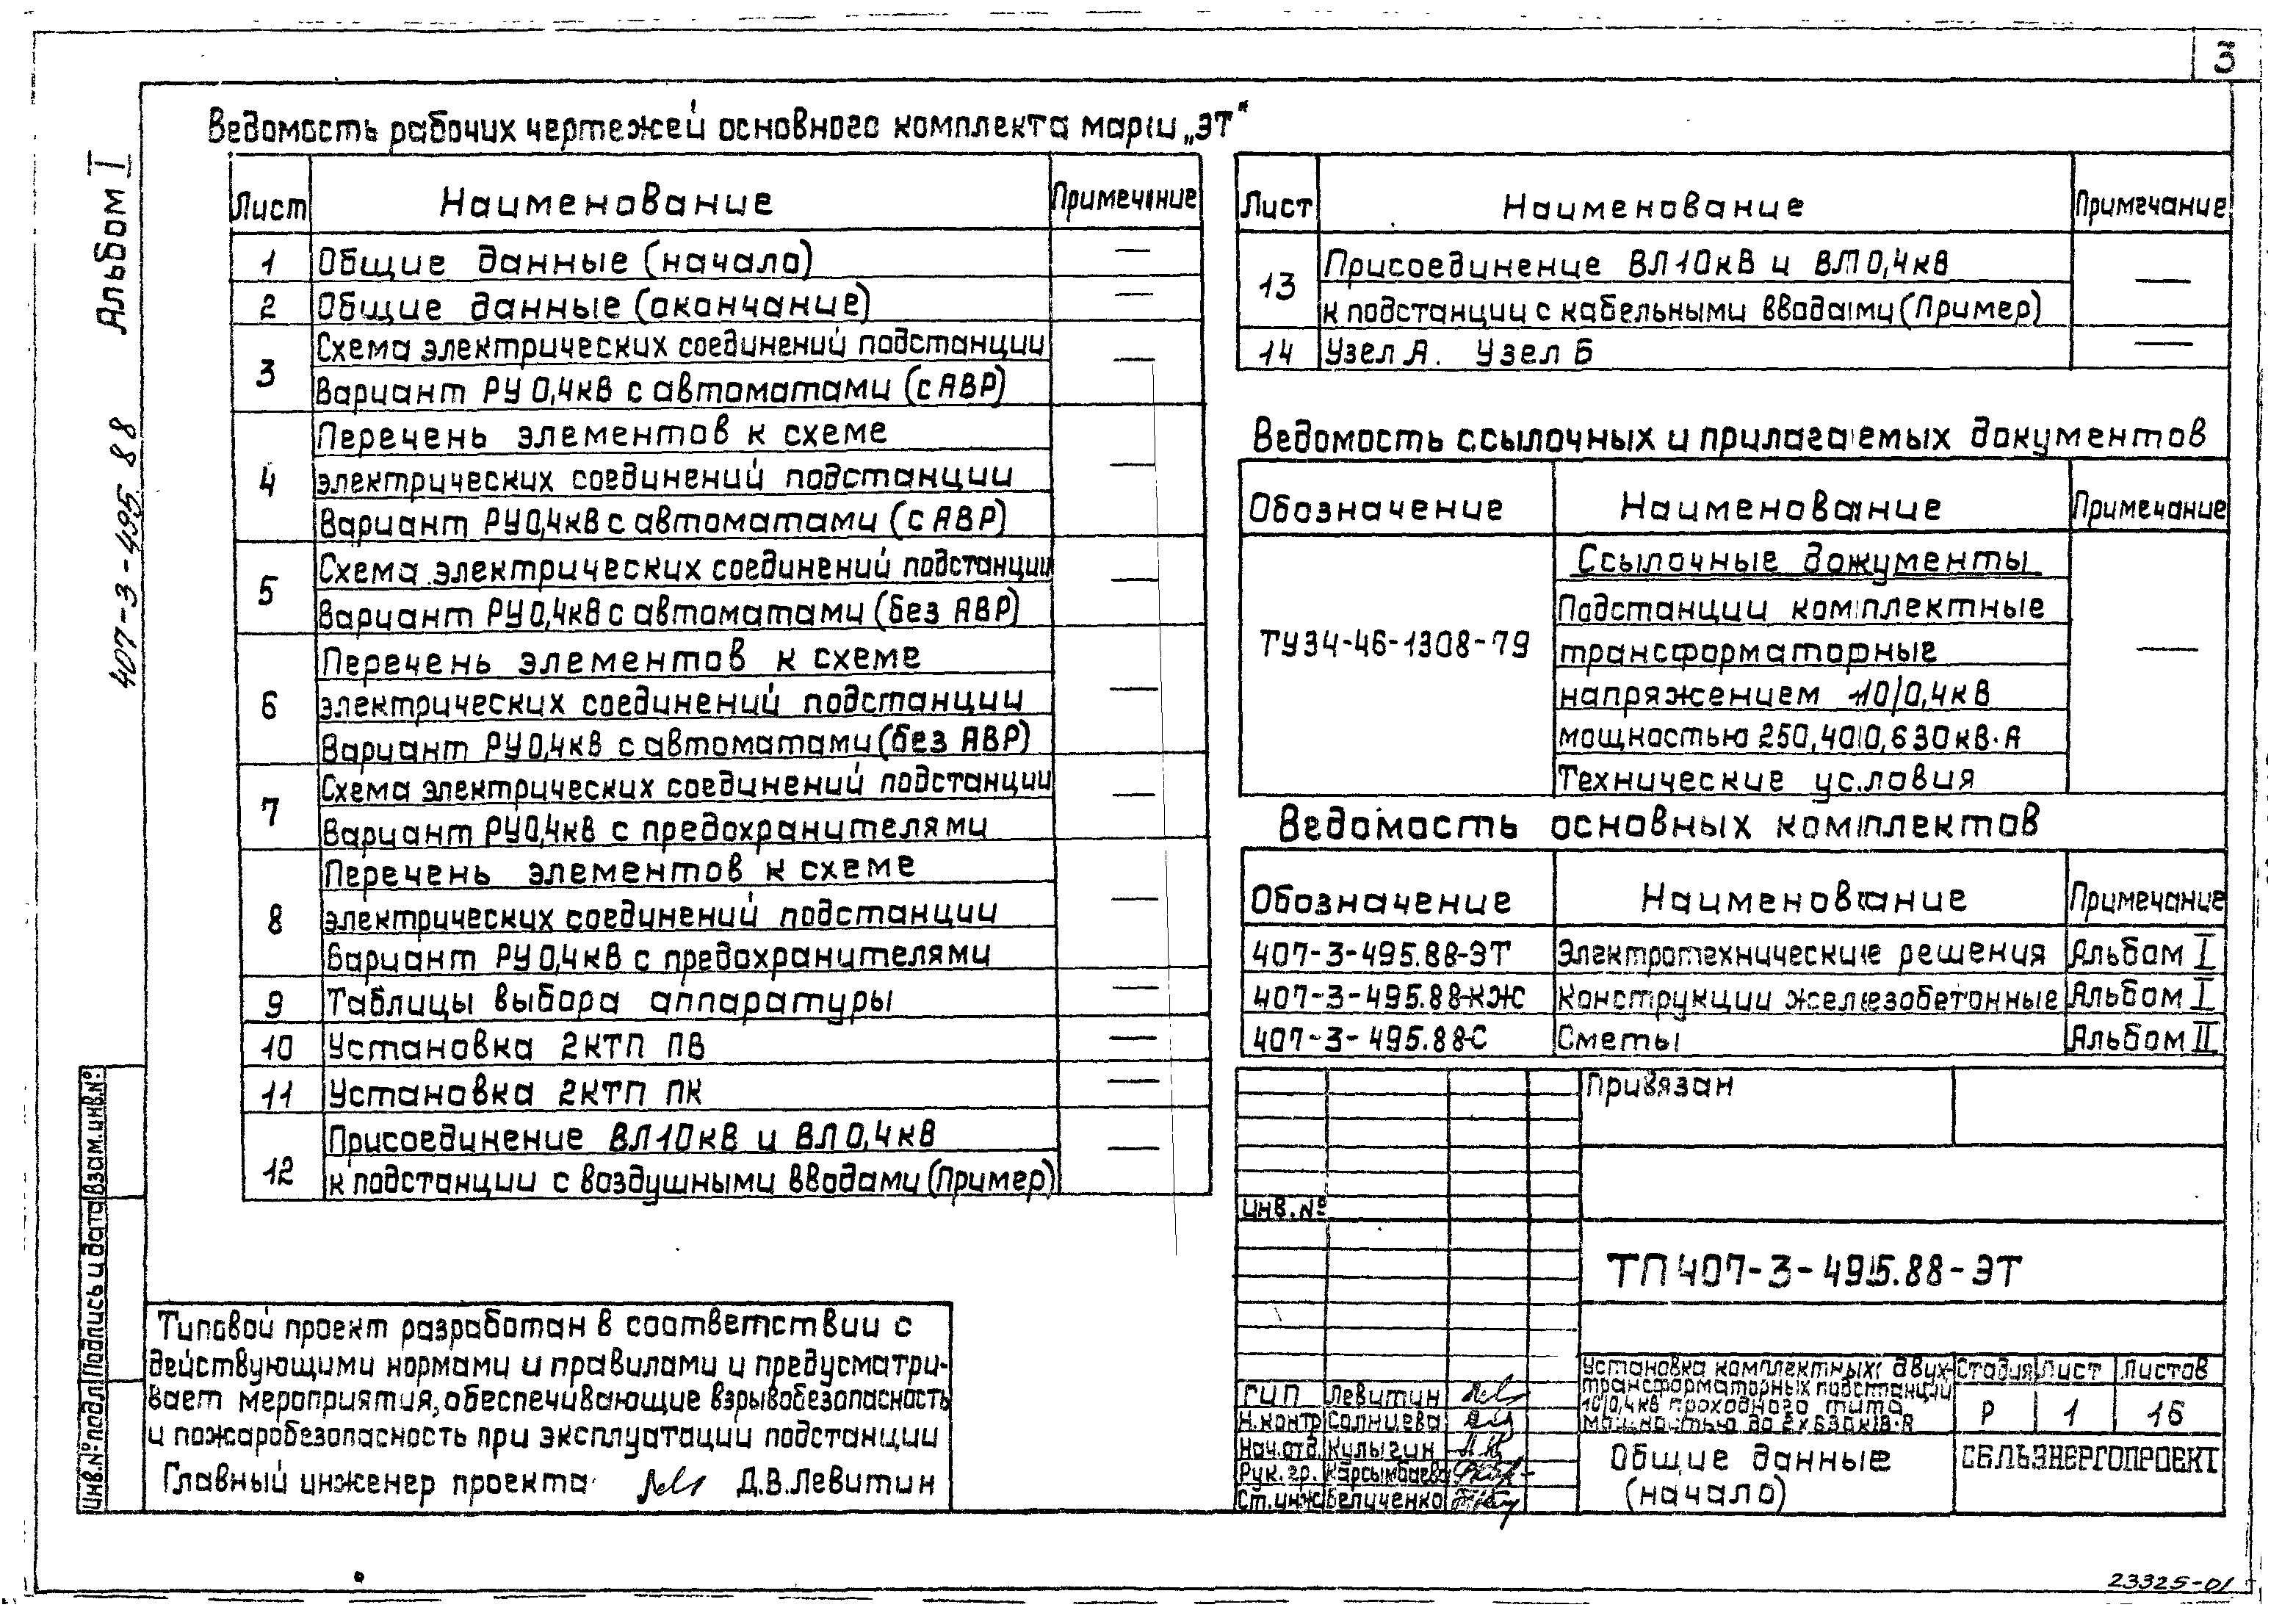 3
Альбом I
407-3-495.88
Ведомость рабочих чертежей основного комплекта марки „ЭТ"
Лист Наименование Примечание
1 Общие данные (начало) —
2 Общие данные (окончание) —
3 Схема электрических соединений подстанции —
Вариант РУ 0,4кВ с автоматами (с АВР)
4 Перечень элементов к схеме —
электрических соединений подстанции
Вариант РУ 0,4кВ с автоматами (с АВР)
5 Схема электрических соединений подстанции —
Вариант РУ 0,4кВ с автоматами (без АВР)
6 Перечень элементов к схеме —
электрических соединений подстанции
Вариант РУ 0,4кВ с автоматами (без АВР)
7 Схема электрических соединений подстанции —
Вариант РУ 0,4кВ с предохранителями
8 Перечень элементов к схеме —
электрических соединений подстанции
Вариант РУ 0,4кВ с предохранителями
9 Таблицы выбора аппаратуры —
10 Установка 2КТП ПВ —
11 Установка 2КТП ПК —
12 Присоединение ВЛ10кВ и ВЛ 0,4кВ —
к подстанции с воздушными вводами (Пример)
Лист Наименование Примечание
13 Присоединение ВЛ10кВ и ВЛ 0,4кВ —
к подстанции с кабельными вводами (Пример)
14 Узел А. Узел Б —
Ведомость ссылочных и прилагаемых документов
Обозначение Наименование Примечание
Ссылочные документы
ТУ34-46-1308-79 Подстанции комплектные —
трансформаторные
напряжением 10/0,4кВ
мощностью 250,400,630кВ·А
Технические условия
Ведомость основных комплектов
Обозначение Наименование Примечание
407-3-495.88-ЭТ Электротехнические решения Альбом I
407-3-495.88-КЖ Конструкции железобетонные Альбом I
407-3-495.88-С Сметы Альбом II
Привязан
Инв.№
ТП 407-3-495.88-ЭТ
Установка комплектных двух-
трансформаторных подстанций
10/0,4кВ проходного типа
мощностью до 2х630кВ·А
Стадия Лист Листов
Р 1 16
ГИП Левитин
Н.контр Солнцева
Нач.отд. Кулыгин
Рук.гр. Карсымбаева
Ст.инж Величенко
Общие данные
(начало)
СЕЛЬЭНЕРГОПРОЕКТ
Типовой проект разработан в соответствии с
действующими нормами и правилами и предусматри-
вает мероприятия, обеспечивающие взрывобезопасность
и пожаробезопасность при эксплуатации подстанции
Главный инженер проекта Д.В.Левитин
Инв.№ подл Подпись и дата Взам.инв.№
23325-01